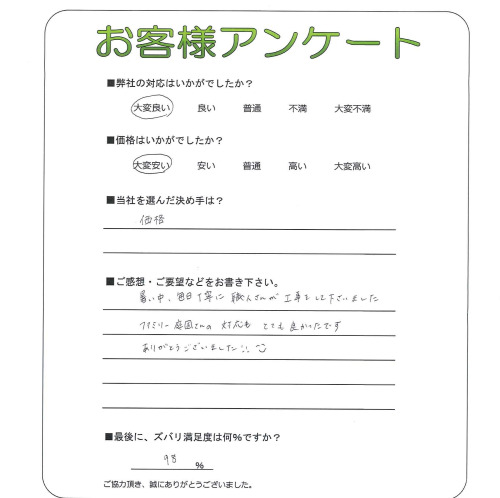 お客様アンケート
■弊社の対応はいかがでしたか？
大変良い 良い 普通 不満 大変不満
■価格はいかがでしたか？
大変安い 安い 普通 高い 大変高い
■当社を選んだ決め手は？
価格
■ご感想・ご要望などをお書き下さい。
暑い中、毎日丁寧に職人さんが工事をして下さいました
ファミリー庭園さんの対応もとても良かったです
ありがとうございました!!
■最後に、ズバリ満足度は何%ですか？
98 %
ご協力頂き、誠にありがとうございました。